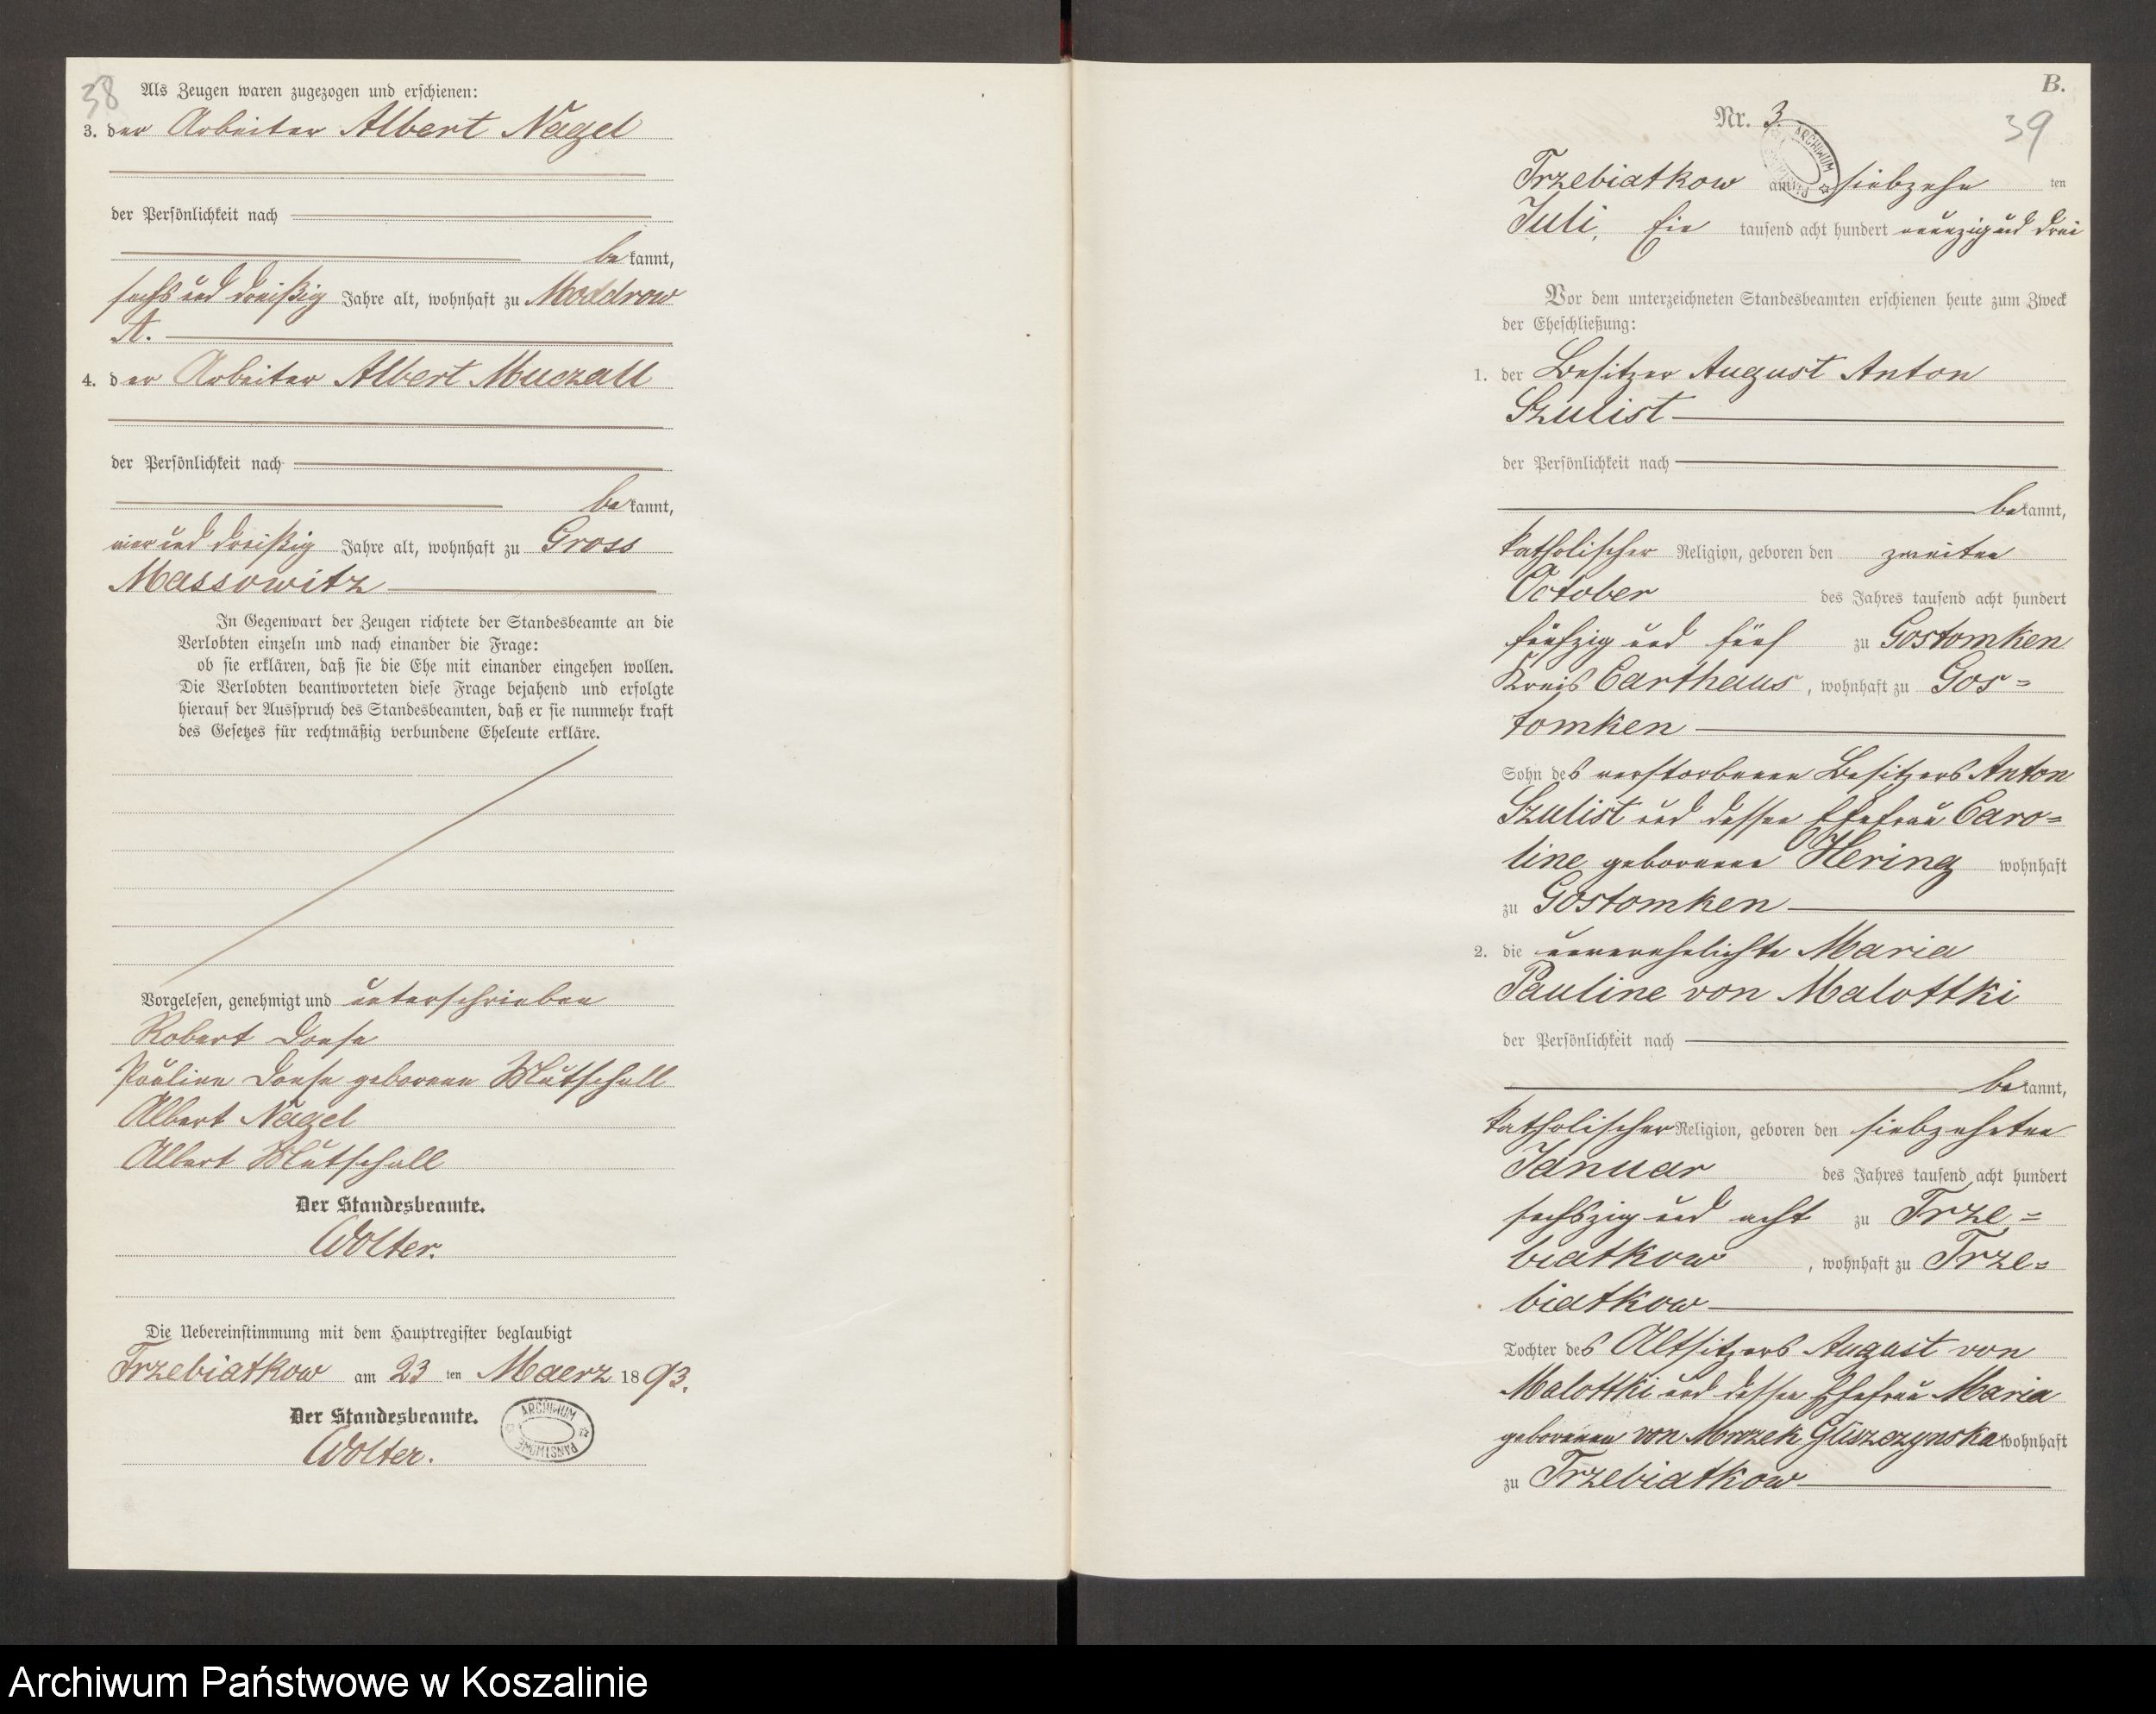 38
Als Zeugen waren zugezogen und erschienen:
3. der Arbeiter Albert Nagel
der Persönlichkeit nach
bekannt,
sechs und dreißig Jahre alt, wohnhaft zu Moddrow
A.
4. der Arbeiter Albert Muczall
der Persönlichkeit nach
bekannt,
vier und dreißig Jahre alt, wohnhaft zu Gross
Massowitz
In Gegenwart der Zeugen richtete der Standesbeamte an die
Verlobten einzeln und nach einander die Frage:
ob sie erklären, daß sie die Ehe mit einander eingehen wollen.
Die Verlobten beantworteten diese Frage bejahend und erfolgte
hierauf der Ausspruch des Standesbeamten, daß er sie nunmehr kraft
des Gesetzes für rechtmäßig verbundene Eheleute erkläre.
Vorgelesen, genehmigt und unterschrieben
Robert Danse
Pauline Danse geborene Mutschall
Albert Nagel
Albert Mutschall
Der Standesbeamte.
Wolter.
Die Uebereinstimmung mit dem Hauptregister beglaubigt
Trzebiatkow am 23 ten Maerz 1893.
Der Standesbeamte.
Wolter.
ARCHIWUM PAŃSTWOWE
B.
39
Nr. 3.
ARCHIWUM
Trzebiatkow am siebzehn ten
Juli, Ein tausend acht hundert neunzig und drei
Vor dem unterzeichneten Standesbeamten erschienen heute zum Zweck
der Eheschließung:
1. der Besitzer August Anton
Szulist
der Persönlichkeit nach
bekannt,
katholischer Religion, geboren den zweiten
October des Jahres tausend acht hundert
fünfzig und fünf zu Gostomken
Kreis Carthaus, wohnhaft zu Gos=
tomken
Sohn des verstorbenen Besitzers Anton
Szulist und dessen Ehefrau Caro=
line geborenen Hering wohnhaft
zu Gostomken
2. die unverehelichte Maria
Pauline von Malottki
der Persönlichkeit nach
bekannt,
katholischer Religion, geboren den siebzehnten
Januar des Jahres tausend acht hundert
sechszig und acht zu Trze=
biatkow, wohnhaft zu Trze=
biatkow
Tochter des Altsitzers August von
Malottki und dessen Ehefrau Maria
geborenen von Mrozek Gliszczynska wohnhaft
zu Trzebiatkow
Archiwum Państwowe w Koszalinie